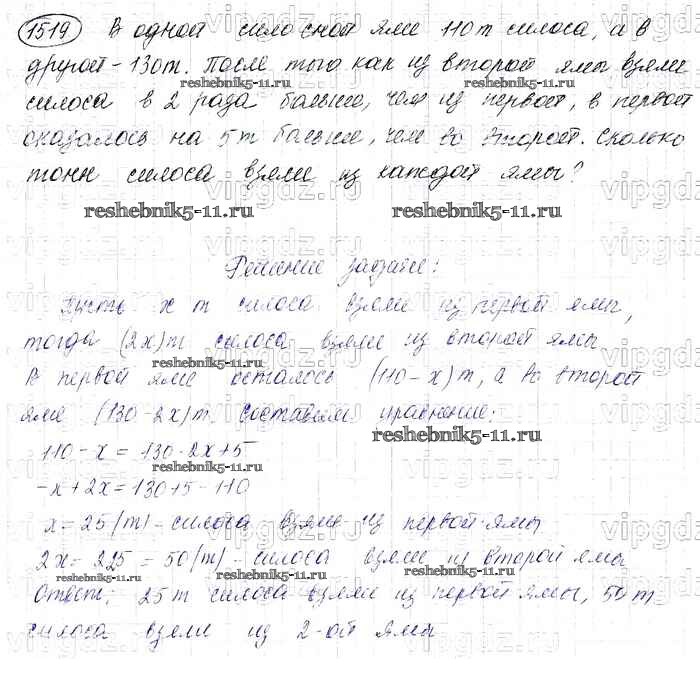 1519 В одной силосной яме 110 т силоса, а в
другой - 130 т. После того как из второй ямы взяли
reshebnik5-11.ru
силоса в 2 раза больше, чем из первой, в первой
оказалось на 5 т больше, чем во второй. Сколько
тонн силоса взяли из каждой ямы?
reshebnik5-11.ru reshebnik5-11.ru
Решение задачи:
Пусть х т силоса взяли из первой ямы,
тогда (2х) т силоса взяли из второй ямы
reshebnik5-11.ru
В первой яме осталось (110-х) т, а во второй
яме (130-2х) т. Составим уравнение:
reshebnik5-11.ru
110-х=130-2х+5
reshebnik5-11.ru
-х+2х=130+5-110
х=25 (т) - силоса взяли из первой ямы
2х=2·25=50 (т) - силоса взяли из второй ямы
reshebnik5-11.ru reshebnik5-11.ru reshebnik5-11.ru
Ответ: 25 т силоса взяли из первой ямы, 50 т
силоса взяли из 2-ой ямы